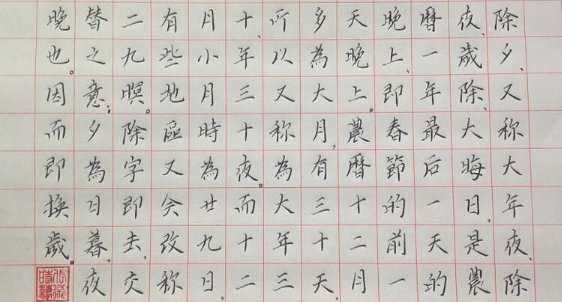 除夕、又称大年夜、除
夜、歲除、大晦日,是農
曆一年最后一天的
晚上、即春節前一
天晚上。農曆十二月
多為大月,有三十天,
所以又称為大年三
十、年三十夜。而十二
月小月時為廿九日,
有些地區又会改称
二九暝。除字即去,交
替之意;夕為日暮,夜
晚也。因而即換歲。